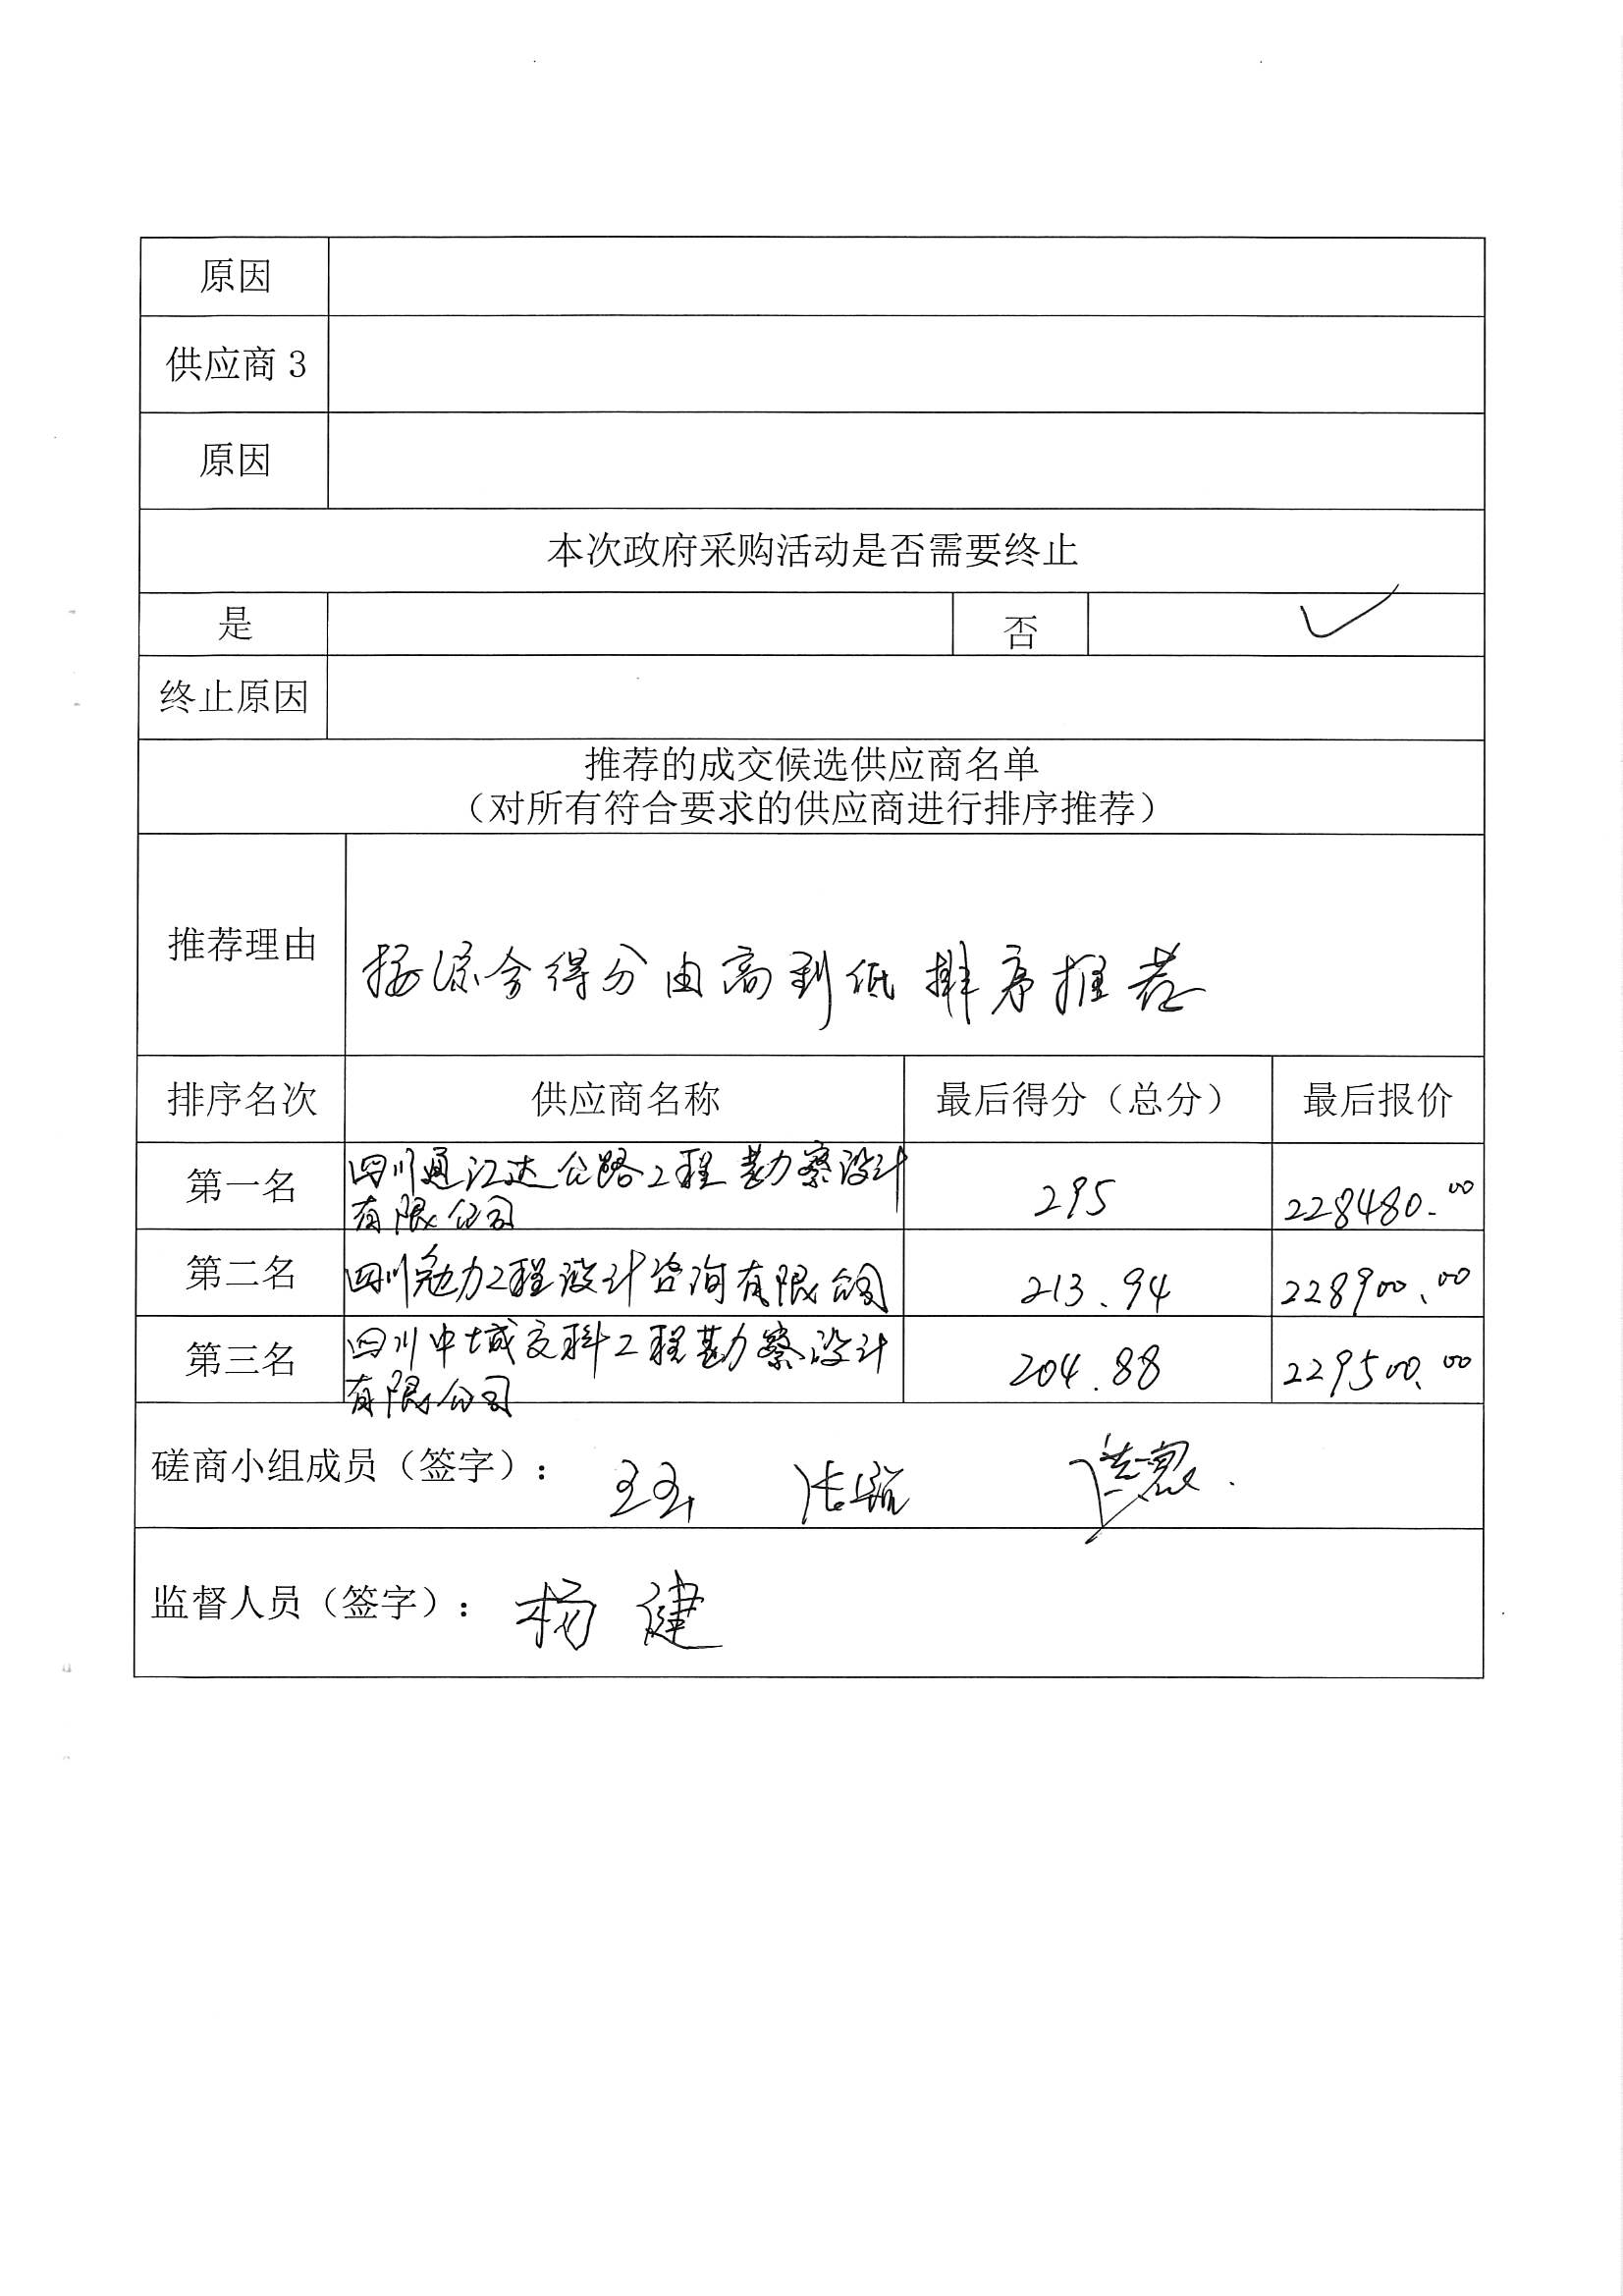 原因
供应商 3
原因
本次政府采购活动是否需要终止
是 否 ✓
终止原因
推荐的成交候选供应商名单
（对所有符合要求的供应商进行排序推荐）
推荐理由 按综合得分由高到低排序推荐
排序名次 供应商名称 最后得分（总分） 最后报价
第一名 四川通江达公路工程勘察设计
有限公司 295 228480.00
第二名 四川勉力工程设计咨询有限公司 213.94 228900.00
第三名 四川中域交科工程勘察设计
有限公司 204.88 229500.00
磋商小组成员（签字）：
监督人员（签字）： 杨建